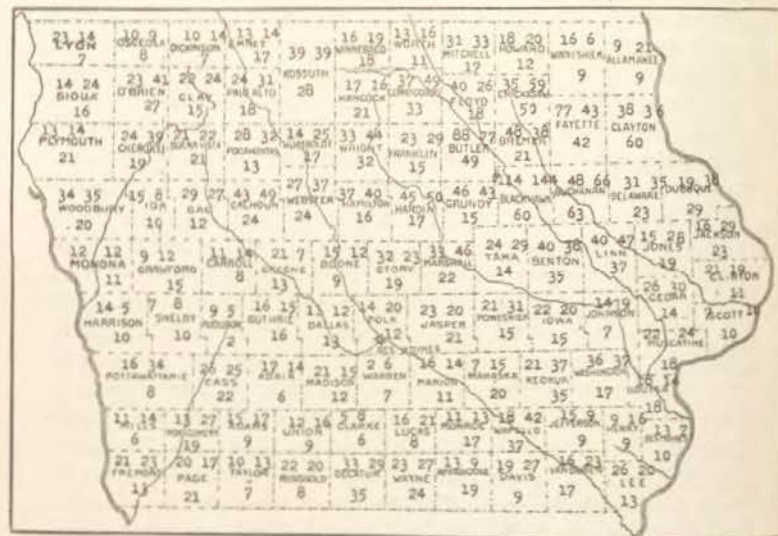 23 14 LYON 7
10 9 OSCEOLA 8
10 14 DICKINSON 7
13 14 EMMET 17
39 39 KOSSUTH 28
16 19 WINNEBAGO 18
13 16 WORTH 11
31 33 MITCHELL 17
18 20 HOWARD 12
16 6 WINNESHIEK 9
9 21 ALLAMAKEE 9
14 24 SIOUX 16
23 41 O'BRIEN 27
22 24 CLAY 15
24 31 PALO ALTO 18
17 16 HANCOCK 21
37 49 CERRO GORDO 33
40 26 FLOYD 18
35 59 CHICKASAW 50
77 43 FAYETTE 42
38 36 CLAYTON 60
13 14 PLYMOUTH 21
24 39 CHEROKEE 19
21 22 BUENA VISTA 21
28 32 POCAHONTAS 13
14 25 HUMBOLDT 17
33 44 WRIGHT 32
23 29 FRANKLIN 15
88 77 BUTLER 49
48 38 BREMER 21
34 35 WOODBURY 20
15 8 IDA 10
29 27 SAC 12
43 49 CALHOUN 24
27 37 WEBSTER 24
37 40 HAMILTON 16
45 50 HARDIN 17
46 43 GRUNDY 15
114 144 BLACKHAWK 60
48 66 BUCHANAN 63
31 35 DELAWARE 23
19 38 DUBUQUE 29
12 12 MONONA 11
9 12 CRAWFORD 15
11 14 CARROLL 8
21 7 GREENE 13
15 12 BOONE 9
32 23 STORY 19
33 46 MARSHALL 22
24 29 TAMA 14
40 38 BENTON 35
40 47 LINN 37
15 28 JONES 19
16 29 JACKSON 23
21 19 CLINTON 11
14 5 HARRISON 10
7 8 SHELBY 10
9 5 AUDUBON 2
16 15 GUTHRIE 16
11 12 DALLAS 13
14 20 POLK 12
DES MOINES
23 20 JASPER 21
21 31 POWESHIEK 15
22 20 IOWA 15
14 19 JOHNSON 7
26 30 CEDAR 14
7 10 SCOTT 10
22 24 MUSCATINE
16 14 POTTAWATTAMIE 8
26 25 CASS 22
17 14 ADAIR 6
21 15 MADISON 12
2 6 WARREN 7
16 14 MARION 11
7 15 MAHASKA 20
21 37 KEOKUK 35
36 37 WASHINGTON 17
18
LOUISA 18
11 14 MILLS 6
13 27 MONTGOMERY 19
15 17 ADAMS 9
12 16 UNION 9
5 8 CLARKE 6
16 21 LUCAS 8
11 13 MONROE 17
18 42 WAPELLO 37
15 9 JEFFERSON 9
9 16 HENRY 9
13 7 DES MOINES 10
21 23 FREMONT 13
20 17 PAGE 21
10 13 TAYLOR 7
22 20 RINGGOLD 8
33 29 DECATUR 35
23 27 WAYNE 24
13 9 APPANOOSE 19
19 27 DAVIS 9
16 23 VAN BUREN 17
26 20 LEE 13